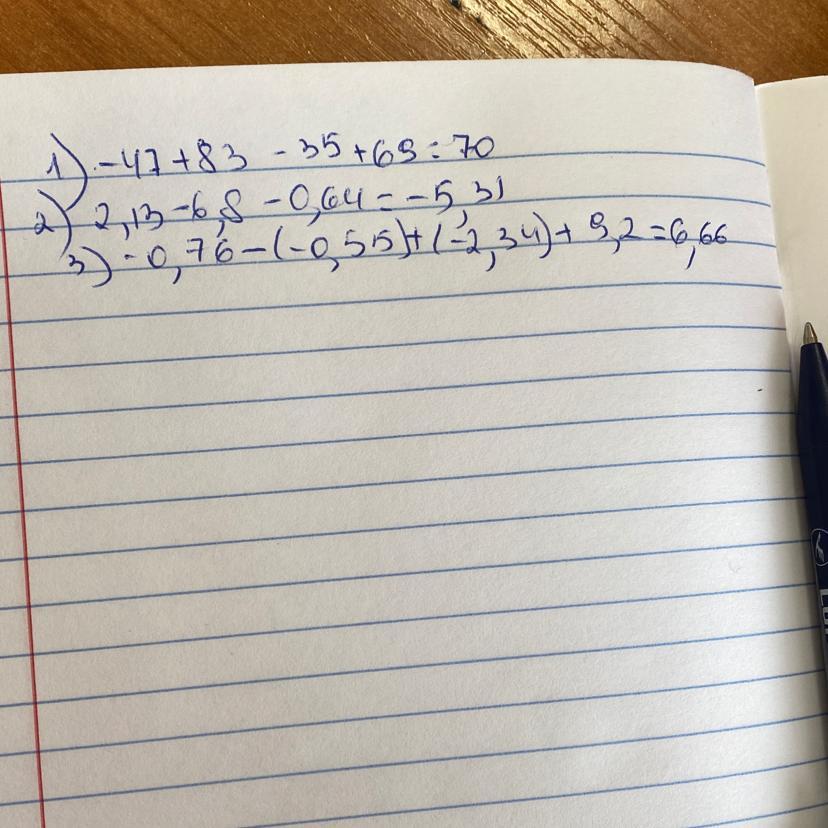 1) -47+83 -35+69=70
2) 2,13-6,8 -0,64=-5,31
3) -0,76-(-0,55)+(-2,34)+9,2=6,66